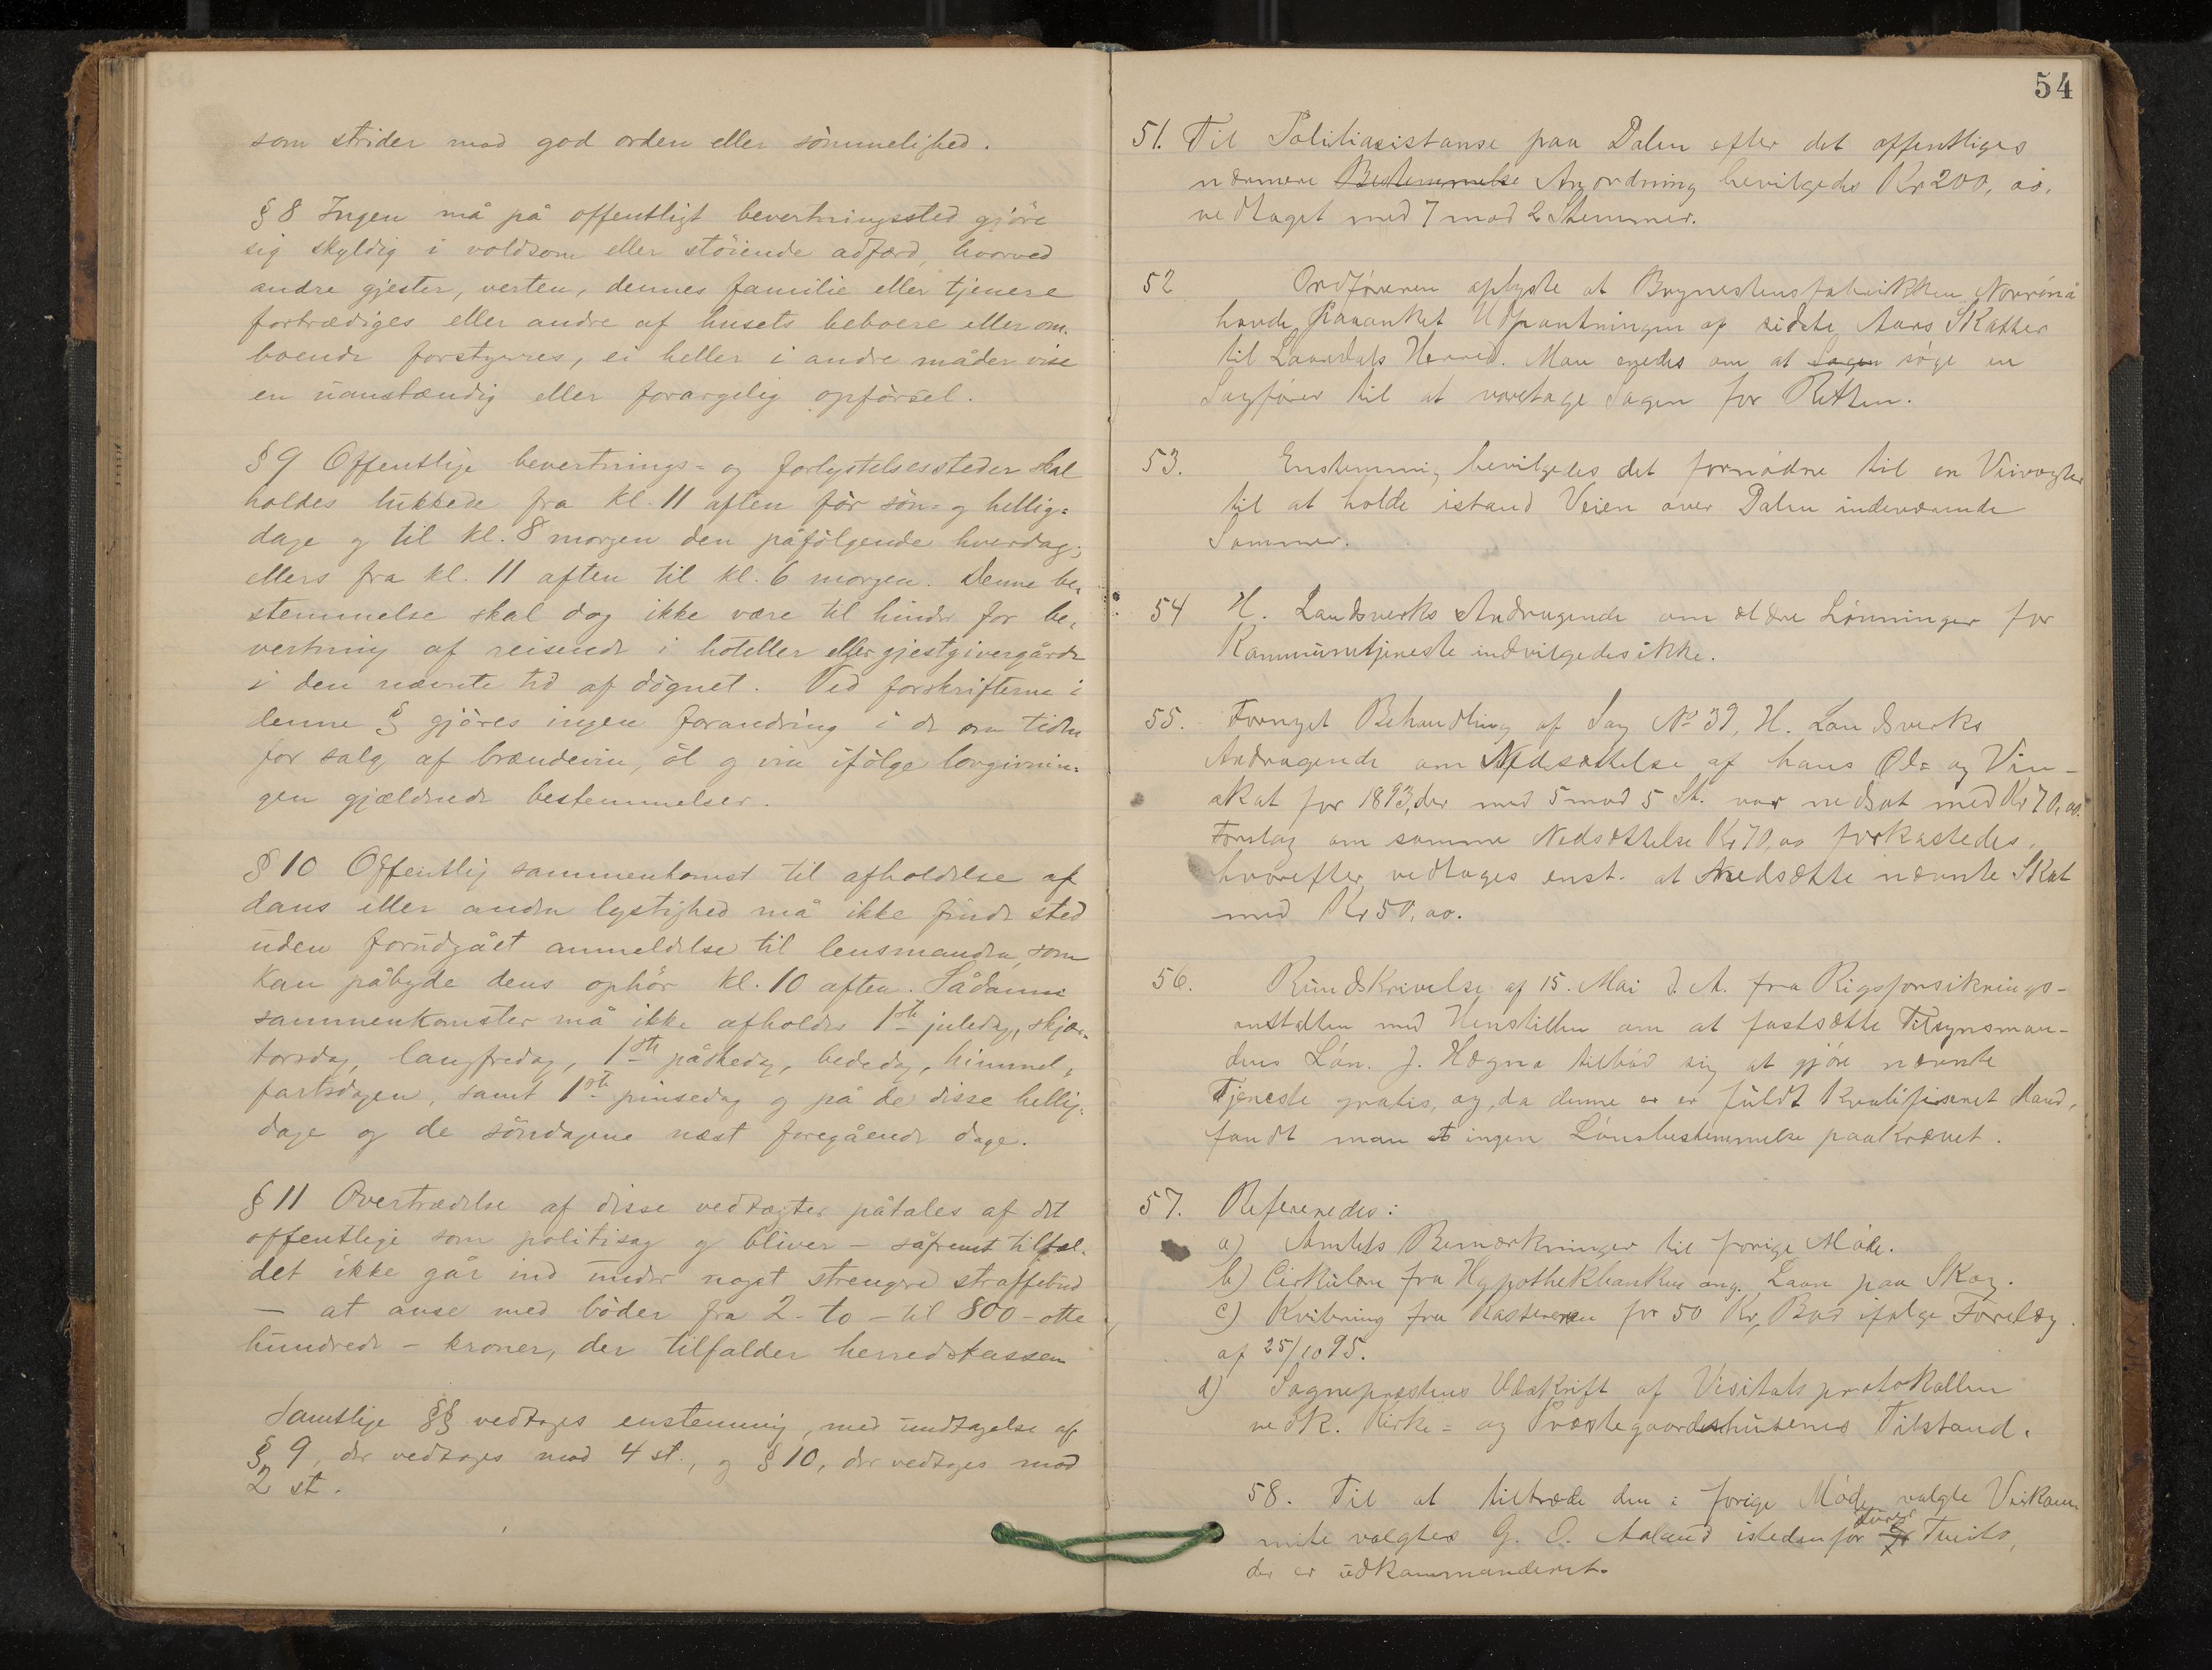 som strider mod god orden eller sömmelighed.
§ 8 Ingen må på offentligt bevertningssted gjöre
sig skyldig i voldsom eller störende adfærd, hvorved
andre gjester, verten, dennes familie eller tjenere
fortrædiges eller andre af husets beboere eller om-
boende forstyrres, ei heller i andre måder vise
en uanstændig eller forargelig opförsel.
§ 9 Offentlige bevertnings- og forlystelsessteder skal
holdes lukkede fra kl. 11 aften för sön- og hellig-
dage og til kl. 8 morgen den påfölgende hverdag;
ellers fra kl. 11 aften til kl. 6 morgen. Denne be-
stemmelse skal dog ikke være til hinder for be-
vertning af reisende i hoteller eller gjestgivergårde
i den nævnte tid af dögnet. Ved forskrifterne i
denne § gjöres ingen forandring i de om tiden
for salg af brændevin, öl og vin ifölge lovgivnin-
gen gjældende bestemmelser.
§ 10 Offentlig sammenkomst til afholdelse af
dans eller anden lystighed må ikke finde sted
uden forudgået anmeldelse til lensmanden, som
kan påbyde dens ophör kl. 10 aften. Sådanne
sammenkomster må ikke afholdes 1ste juledag, skjær-
torsdag, langfredag, 1ste påskedag, bededag, himmel-
fartsdagen, samt 1ste pinsedag og på de disse hellig-
dage og de söndagene næst foregående dage.
§ 11 Overtrædelse af disse vedtægter påtales af det
offentlige som politisag og bliver – såfremt tilfæl-
det ikke går ind under noget strengere straffebud
– at anse med böder fra 2 - to - til 800 - otte
hundrede - kroner, der tilfalder herredskassen
Samtlige §§ vedtoges enstemmig, med undtagelse af
§ 9, der vedtoges mod 4 st., og § 10, der vedtoges mod
2 st.
54
51. Til Politiasistanse paa Dalen efter det offentliges
nærmere Bestemmelse Anordning bevilgedes Kr 200,00,
vedtaget med 7 mod 2 Stemmer.
52 Ordføreren oplyste at Brynestensfabrikken Norrøna
havde paaanket Udpantningen af sidste Aars Skatter
til Laurdals Herred. Man enedes om at Sagen søge en
Sagfører til at varetage Sagen for Retten.
53. Enstemmig bevilgedes det fornødne til en Veivogter
til at holde istand Veien over Dalen indeværende
Sommer.
54 H. Landsverks Andragende om ældre Lønninger for
Kommunetjeneste indvilgedes ikke.
55. Fornyet Behandling af Sag No 39, H. Landsverks
Andragende om Nedsættelse af hans Øl- og Vin-
skat for 1893, der med 5 mod 5 St. var nedsat med Kr 70,00.
Forslag om samme Nedsættelse Kr 70,00 forkastedes,
hvorefter vedtoges enst. at nedsætte nævnte Skat
med Kr 50,00.
56. Rundskrivelse af 15. Mai d. A. fra Rigsforsikrings-
anstalten med Henstillen om at fastsætte Tilsynsman-
dens Løn. J. Hægna tilbød sig at gjøre nævnte
Tjeneste gratis, og, da denne er er fuldt kvalifiseret Mand,
fandt man ingen Lønsbestemmelse paakrævet.
57. Refereredes:
a) Amtets Bemærkninger til forige Møde.
b) Cirkulære fra Hypothekbanken ang. Laan paa Skog.
c) Kvittering fra Kassereren for 50 Kr, Bod ifølge Forelæg
af 25/10 95.
d) Sogneprestens Udskrift af Visitatsprotokollen
vedk. Kirke- og Præstegaardshusenes Tilstand.
58. Til at tiltræde den i forige Møde valgte Veikom
mite valgtes G. O. Aaland istedenfor Tveito,
der er udkommanderet.